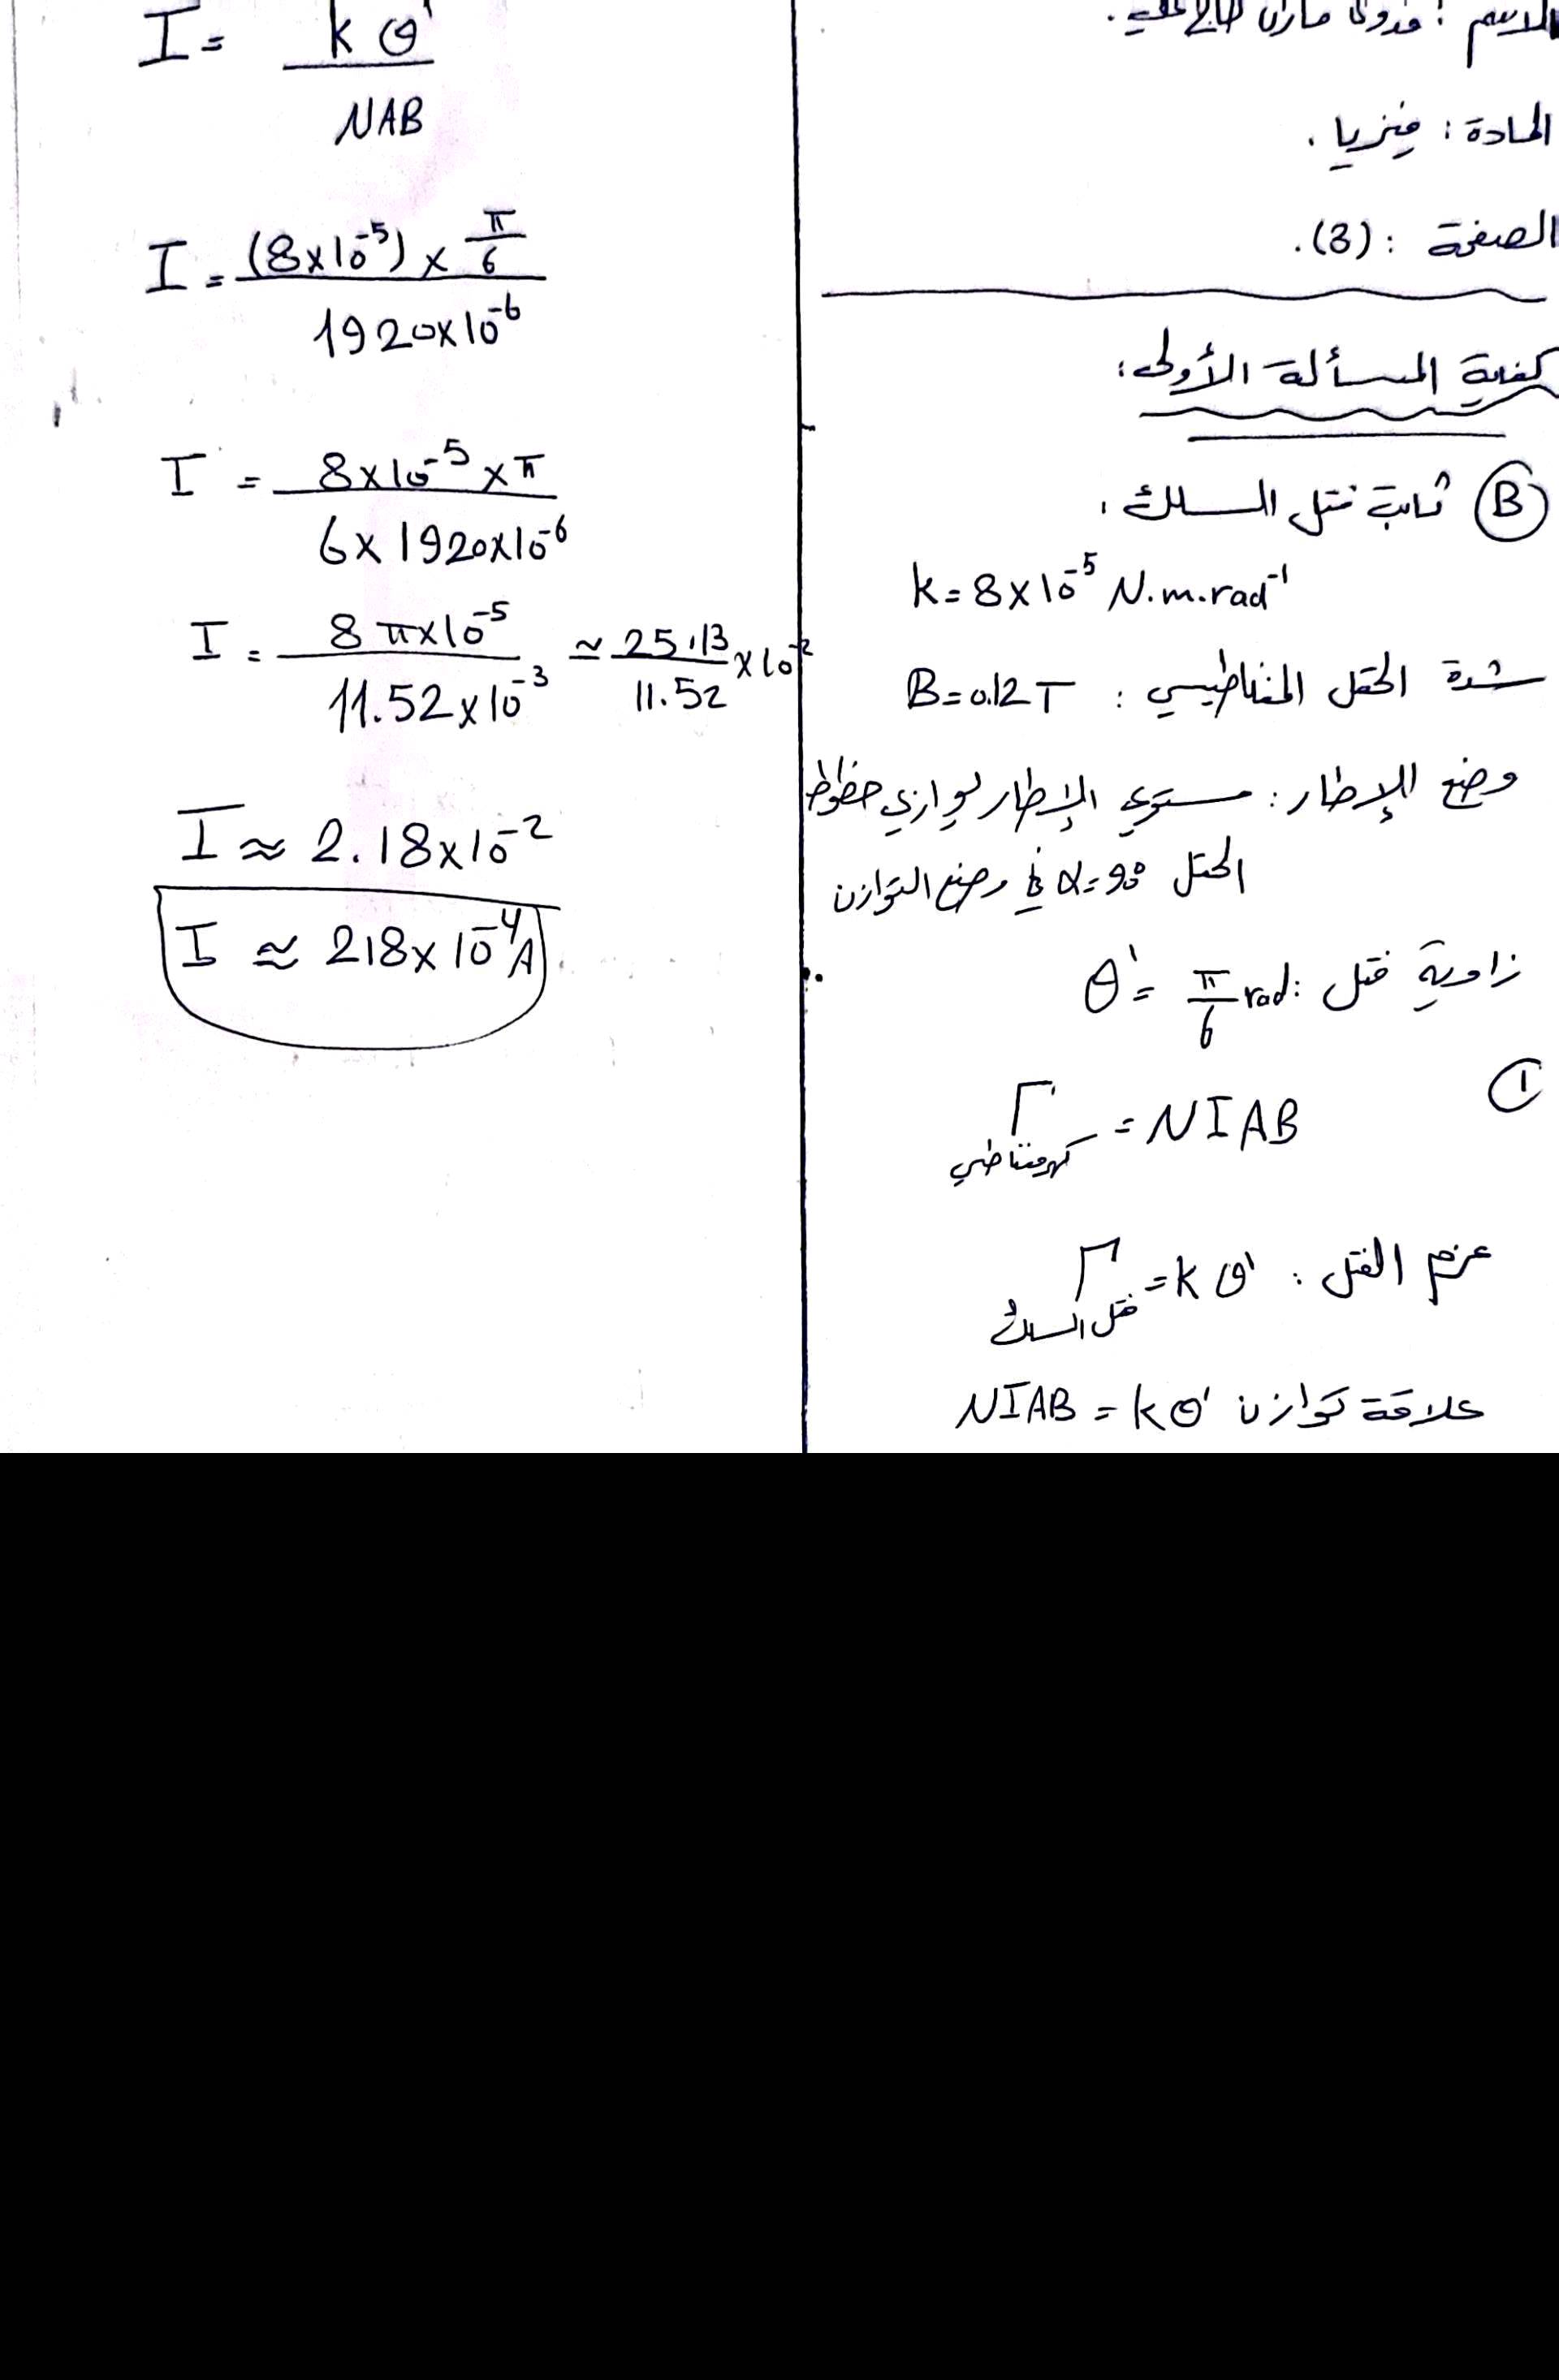 الاسم :
المادة : فيزيا .
الصفحة : (3).
المسألة الأولى :
B ثابت فتل السلك :
k = 8×10⁻⁵ N.m.rad⁻¹
شدة الحقل المغناطيسي : B = 0.12 T
وضع الإطار : مستوي الإطار يوازي خطوط
الحقل α = 90° في وضع التوازن
زاوية فتل : θ' = π/6 rad
1
Γ كهرمغناطيسي = NIAB
عزم الفتل : Γ فتل السلك = kθ'
علاقة توازن NIAB = kθ'
I = kθ' / NAB
I = (8×10⁻⁵) × π/6 / 1920×10⁻⁶
I = 8×10⁻⁵ × π / 6 × 1920×10⁻⁶
I = 8π×10⁻⁵ / 11.52×10⁻³ ≃ 25.13 / 11.52 × 10⁻²
I ≈ 2.18×10⁻²
I ≈ 218×10⁻⁴ A